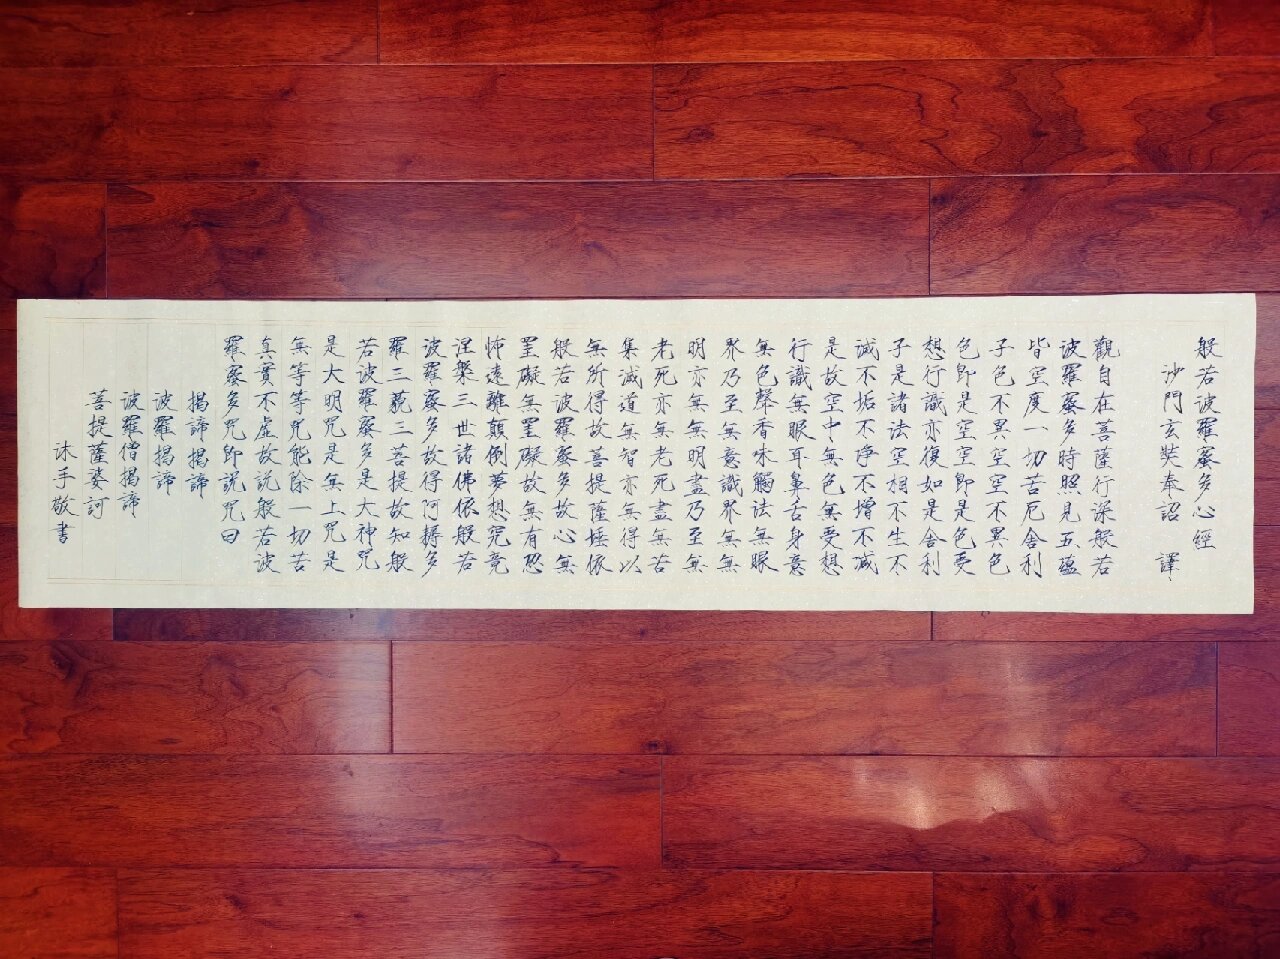 般若波羅蜜多心經
沙門玄奘奉詔 譯
觀自在菩薩行深般若
波羅蜜多時照見五蘊
皆空度一切苦厄舍利
子色不異空空不異色
色即是空空即是色受
想行識亦復如是舍利
子是諸法空相不生不
滅不垢不淨不增不减
是故空中無色無受想
行識無眼耳鼻舌身意
無色聲香味觸法無眼
界乃至無意識界無無
明亦無無明盡乃至無
老死亦無老死盡無苦
集滅道無智亦無得以
無所得故菩提薩埵依
般若波羅蜜多故心無
罣礙無罣礙故無有恐
怖遠離顛倒夢想究竟
涅槃三世諸佛依般若
波羅蜜多故得阿耨多
羅三藐三菩提故知般
若波羅蜜多是大神咒
是大明咒是無上咒是
無等等咒能除一切苦
真實不虛故說般若波
羅蜜多咒即說咒曰
揭諦揭諦
波羅揭諦
波羅僧揭諦
菩提薩婆訶
沐手敬書